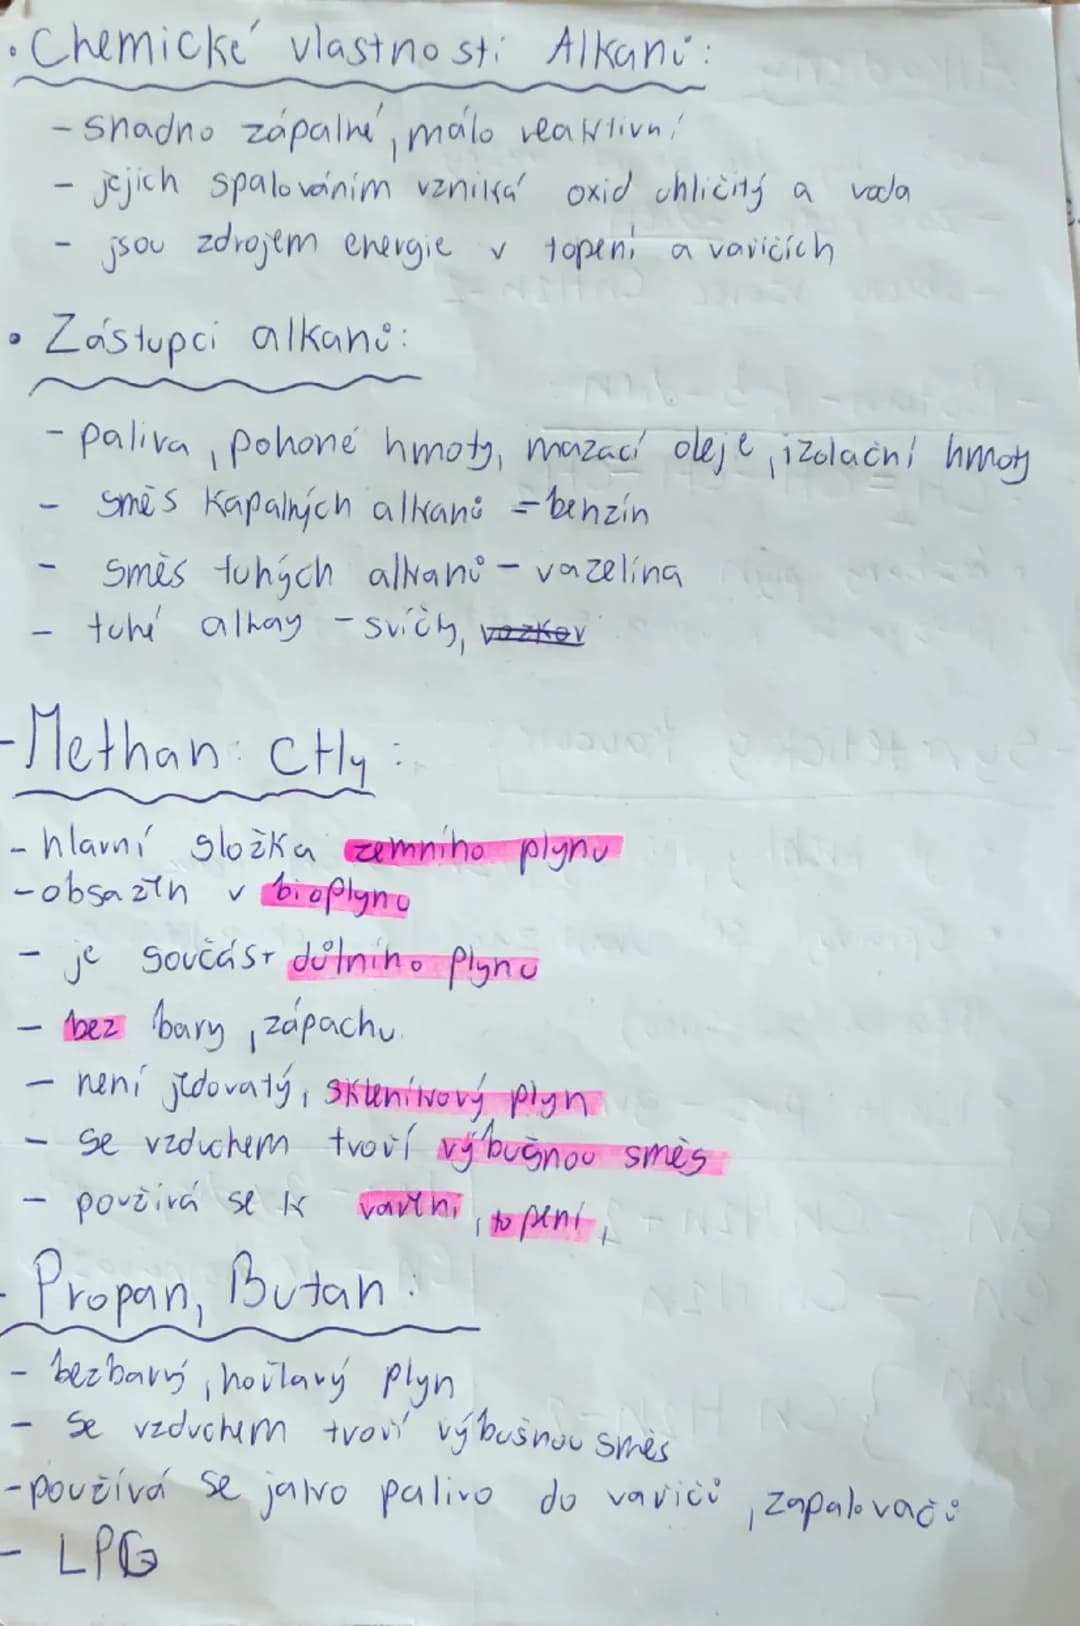 • Chemické vlastnosti Alkanů:
- snadno zápalné, málo reaktivní
- jejich spalováním vzniká oxid uhličitý a voda
- jsou zdrojem energie v topení a vařičích
• Zástupci alkanů:
- paliva, pohoné hmoty, mazací oleje, izolační hmoty
- směs kapalných alkanů = benzín
- směs tuhých alkanů - vazelína
- tuhé alkay - svíčky,
- Methan: CH4:
- hlavní složka zemního plynu
- obsažen v bioplynu
- je součást důlního plynu
- bez barvy, zápachu.
- není jedovatý, skleníkový plyn
- se vzduchem tvoří výbušnou směs
- používá se k vaření, topení,
- Propan, Butan:
- bezbarvý, hořlavý plyn
- se vzduchem tvoří výbušnou směs
- používá se jako palivo do vařičů, zapalovačů
- LPG